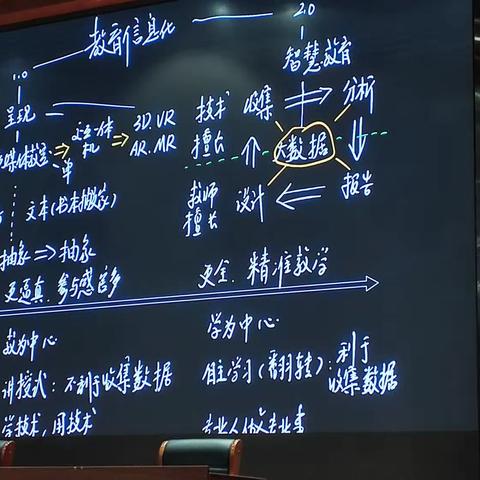 教育信息化
1.0
2.0
智慧教育
呈现
媒体教室 => 交互一体机 => 3D.VR
AR.MR
文本(书本搬家)
抽象 => 抽象
更逼真.参与感苦多
技术擅长
收集 => 分析
大数据
教师擅长
设计 <= 报告
更全.精准教学
教为中心
学为中心
讲授式:不利于收集数据
自主学习(翻转):利于收集数据
学技术,用技术
专业人做专业事